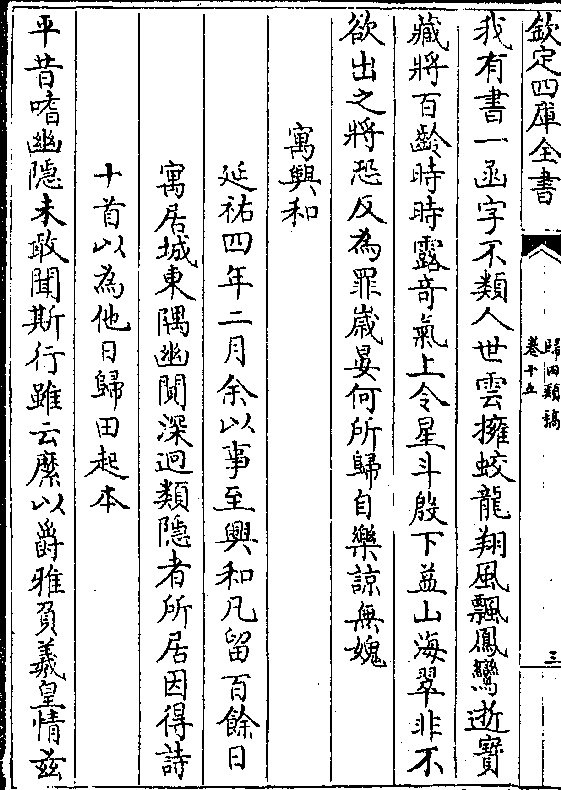 欽定四庫全書
歸田類稿
卷十五
三
我有書一函字不類人世雲擁蛟龍翔風飄鳳鸞逝寶
藏將百齡時時露竒氣上令星斗殷下並山海翠非不
欲出之將恐反為罪歳晏何所歸自樂諒無媿
寓興和
延祐四年二月余以事至興和凡留百餘日
寓居城東隅幽閴深迥類隱者所居因得詩
十首以為他日歸田起本
平昔嗜幽隱未敢聞斯行雖云縻以爵雅負羲皇情兹